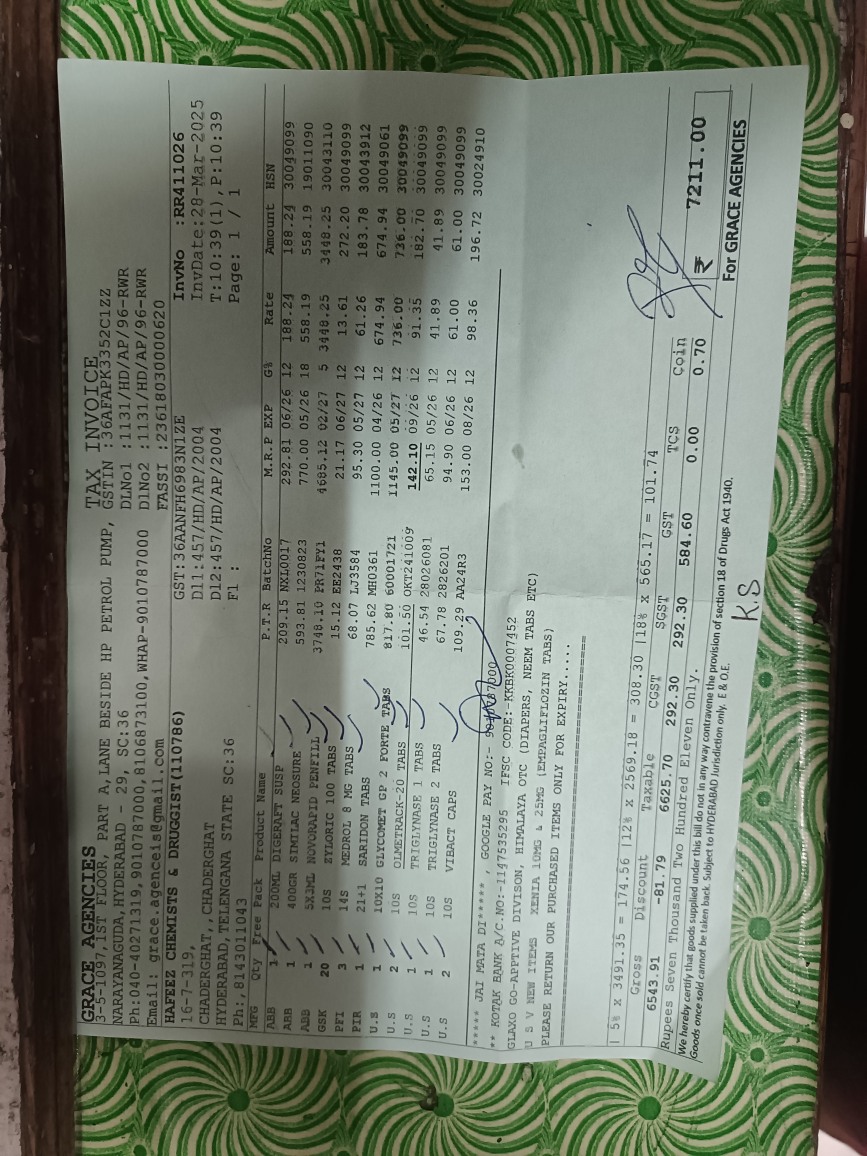 TAX INVOICE
GRACE AGENCIES
3-5-1097,1ST FLOOR, PART A,LANE BESIDE HP PETROL PUMP,
NARAYANAGUDA,HYDERABAD - 29, SC:36
Ph:040-40271319,9010787000,8106873100,WHAP-9010787000
Email: grace.agenceis@gmail.com
GSTIN :36AFAPK3352C1ZZ
DLNo1 :1131/HD/AP/96-RWR
DlNo2 :1131/HD/AP/96-RWR
FASSI :23618030000620
HAFEEZ CHEMISTS & DRUGGIST(110786)
16-7-319,
CHADERGHAT,,CHADERGHAT
HYDERABAD,TELENGANA STATE SC:36
Ph:,8143011043
GST:36AANFH6983N1ZE
Dl1:457/HD/AP/2004
Dl2:457/HD/AP/2004
Fl :
InvNo :RR411026
InvDate:28-Mar-2025
T:10:39(1),P:10:39
Page: 1 / 1
MFG Qty Free Pack Product Name P.T.R BatchNo M.R.P EXP G% Rate Amount HSN
ABB 1 200ML DIGERAFT SUSP 209.15 NXL0017 292.81 06/26 12 188.24 188.24 30049099
ABB 1 400GR SIMILAC NEOSURE 593.81 1230823 770.00 05/26 18 558.19 558.19 19011090
ABB 1 5X3ML NOVORAPID PENFILL 3748.10 PR71FY1 4685.12 02/27 5 3448.25 3448.25 30043110
GSK 20 10S ZYLORIC 100 TABS 15.12 EE2438 21.17 06/27 12 13.61 272.20 30049099
PFI 3 14S MEDROL 8 MG TABS 68.07 LJ3584 95.30 05/27 12 61.26 183.78 30043912
PIR 1 21+1 SARIDON TABS 785.62 MH0361 1100.00 04/26 12 674.94 674.94 30049061
U.S 1 10X10 GLYCOMET GP 2 FORTE TABS 817.80 60001721 1145.00 05/27 12 736.00 736.00 30049099
U.S 2 10S OLMETRACK-20 TABS 101.50 OKT241009 142.10 09/26 12 91.35 182.70 30049099
U.S 1 10S TRIGLYNASE 1 TABS 46.54 28026081 65.15 05/26 12 41.89 41.89 30049099
U.S 1 10S TRIGLYNASE 2 TABS 67.78 2826201 94.90 06/26 12 61.00 61.00 30049099
U.S 2 10S VIBACT CAPS 109.29 AA24R3 153.00 08/26 12 98.36 196.72 30024910
***** JAI MATA DI***** , GOOGLE PAY NO:- 9010787000
** KOTAK BANK A/C.NO:-1147535295 IFSC CODE:-KKBK0007452
GLAXO GO-APPTIVE DIVISON, HIMALAYA OTC (DIAPERS, NEEM TABS ETC)
U S V NEW ITEMS XENIA 10MG & 25MG (EMPAGLIFLOZIN TABS)
PLEASE RETURN OUR PURCHASED ITEMS ONLY FOR EXPIRY.....
| 5% x 3491.35 = 174.56 |12% x 2569.18 = 308.30 |18% x 565.17 = 101.74
Gross Discount Taxable CGST SGST GST TCS Coin
6543.91 -81.79 6625.70 292.30 292.30 584.60 0.00 0.70
₹ 7211.00
Rupees Seven Thousand Two Hundred Eleven Only.
We hereby certify that goods supplied under this bill do not in any way contravene the provision of section 18 of Drugs Act 1940.
Goods once sold cannot be taken back. Subject to HYDERABAD Jurisdiction only. E & O.E.
For GRACE AGENCIES
K.S